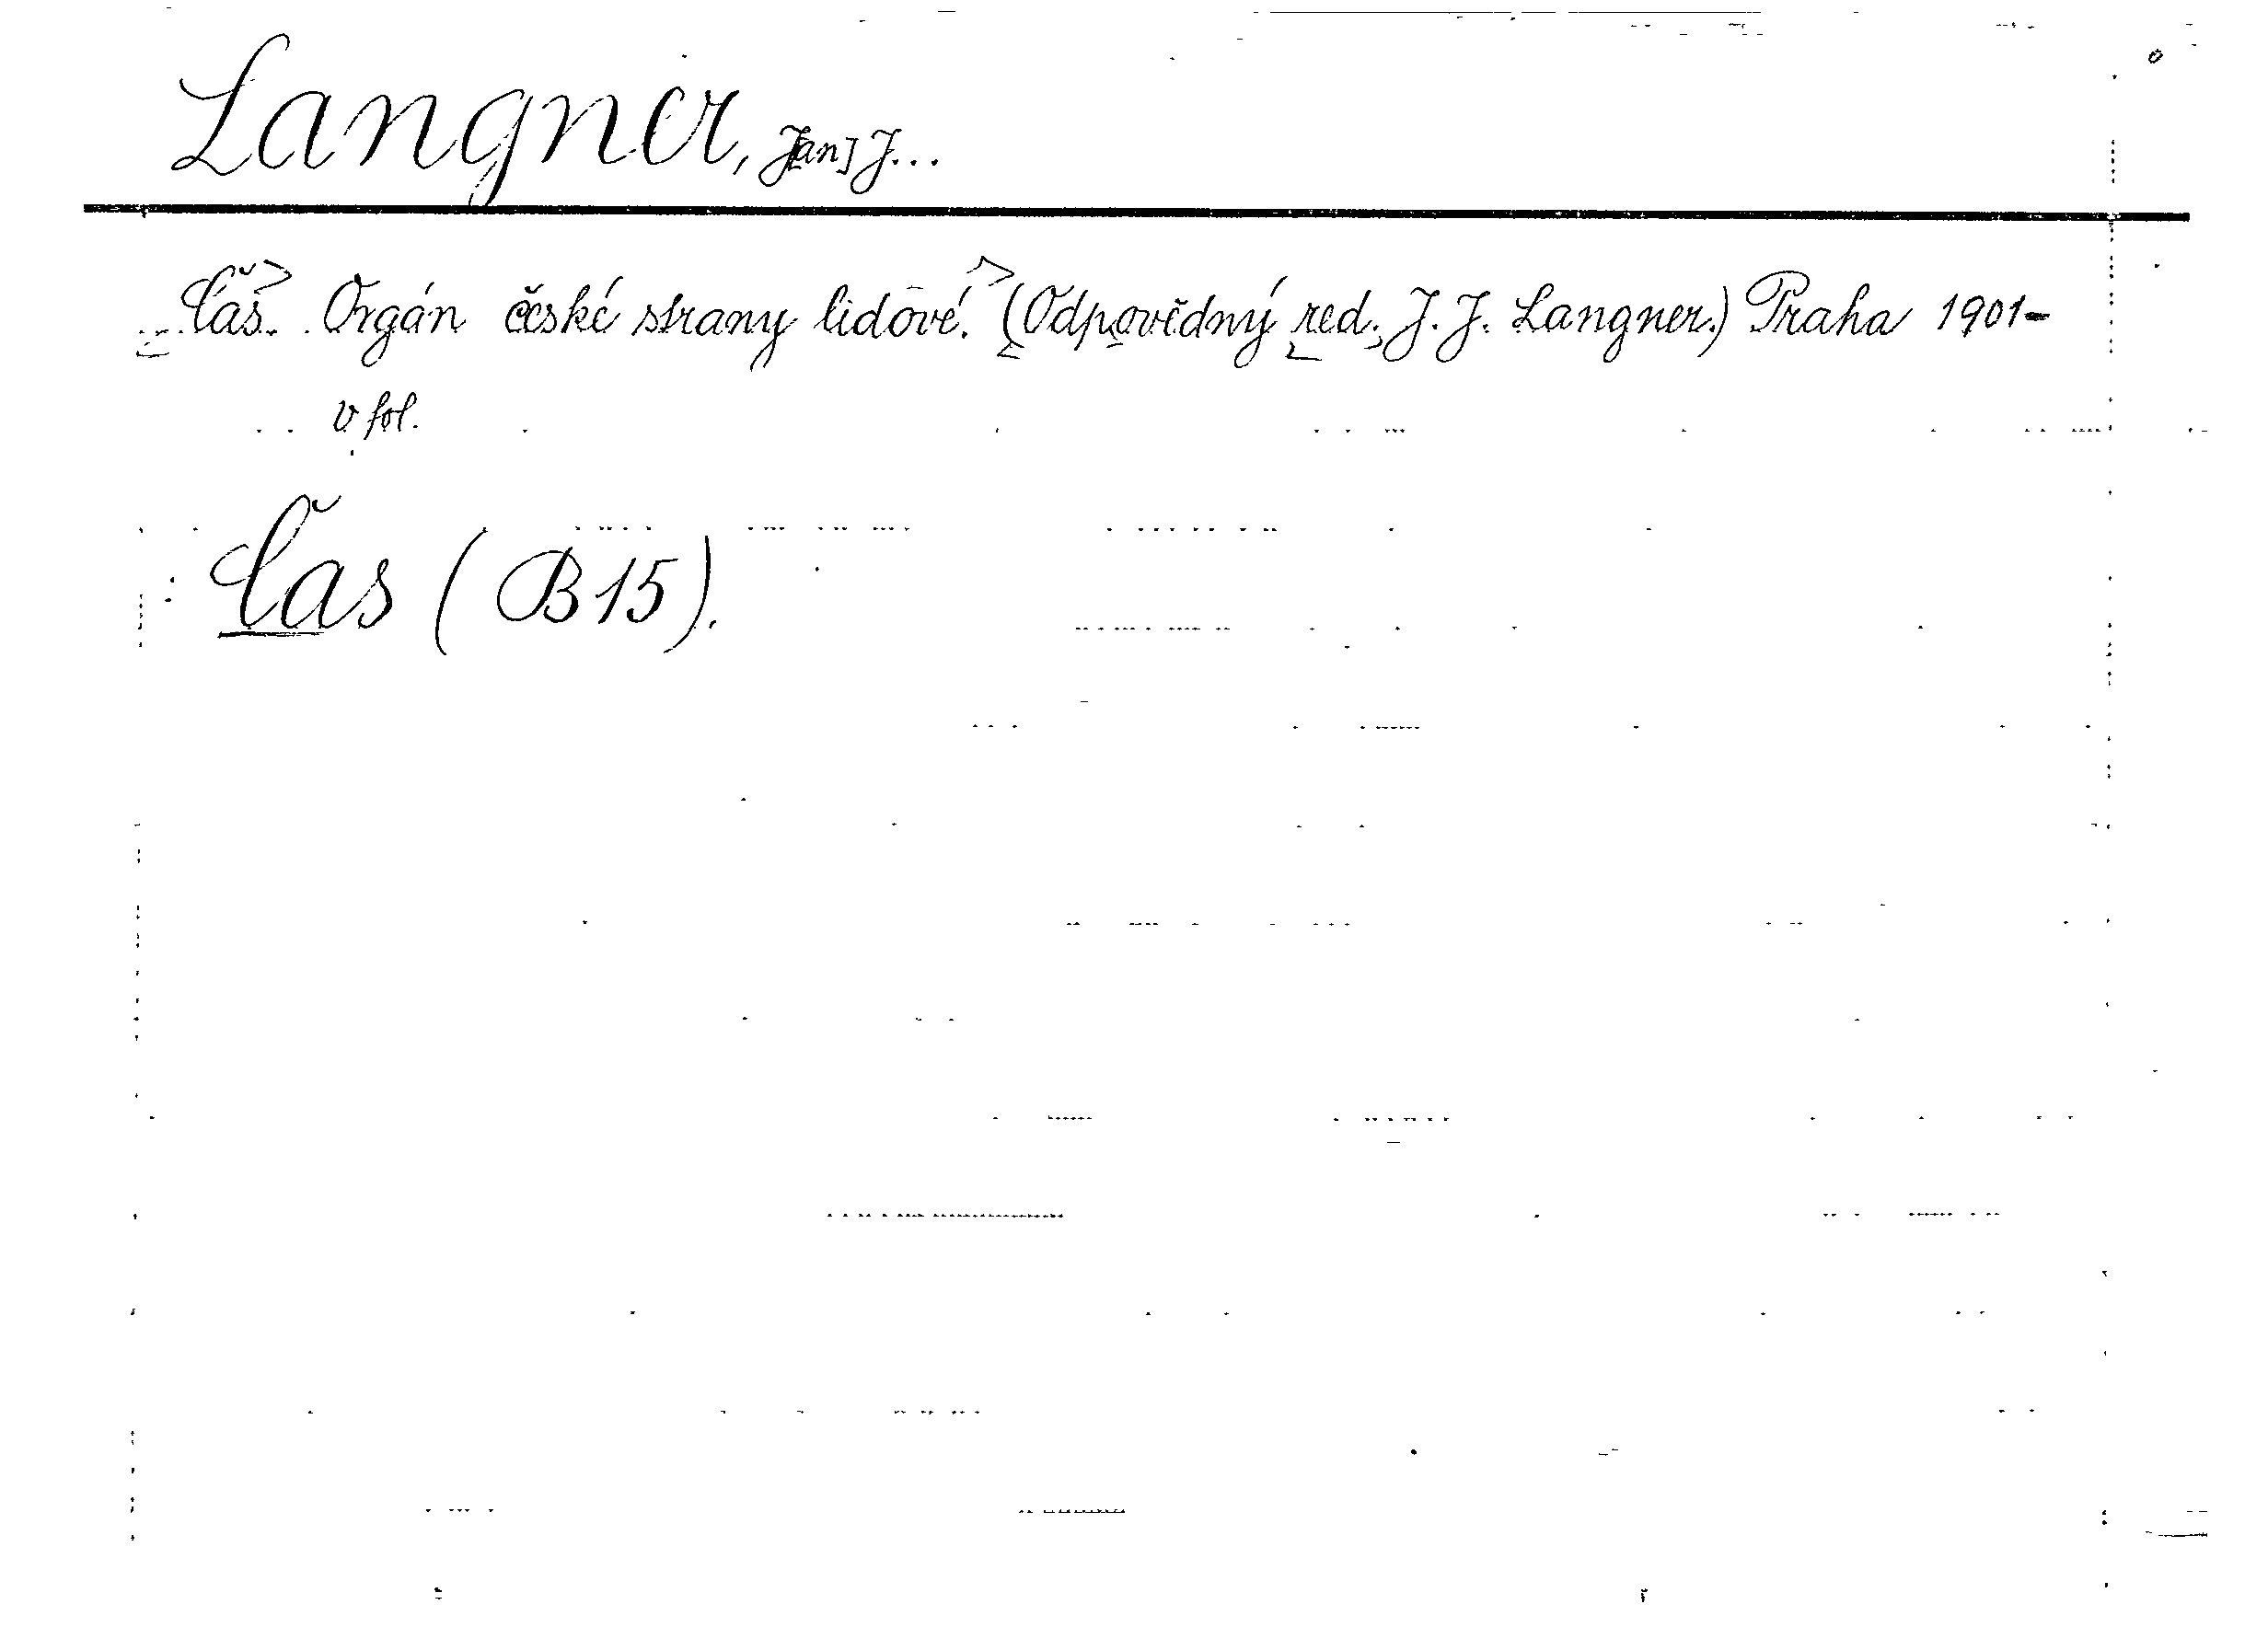 Langner, J[an] J...
Čas. Orgán české strany lidové. (Odpovědný red. J. J. Langner.) Praha 1901-
v fol.
Čas (B 15).